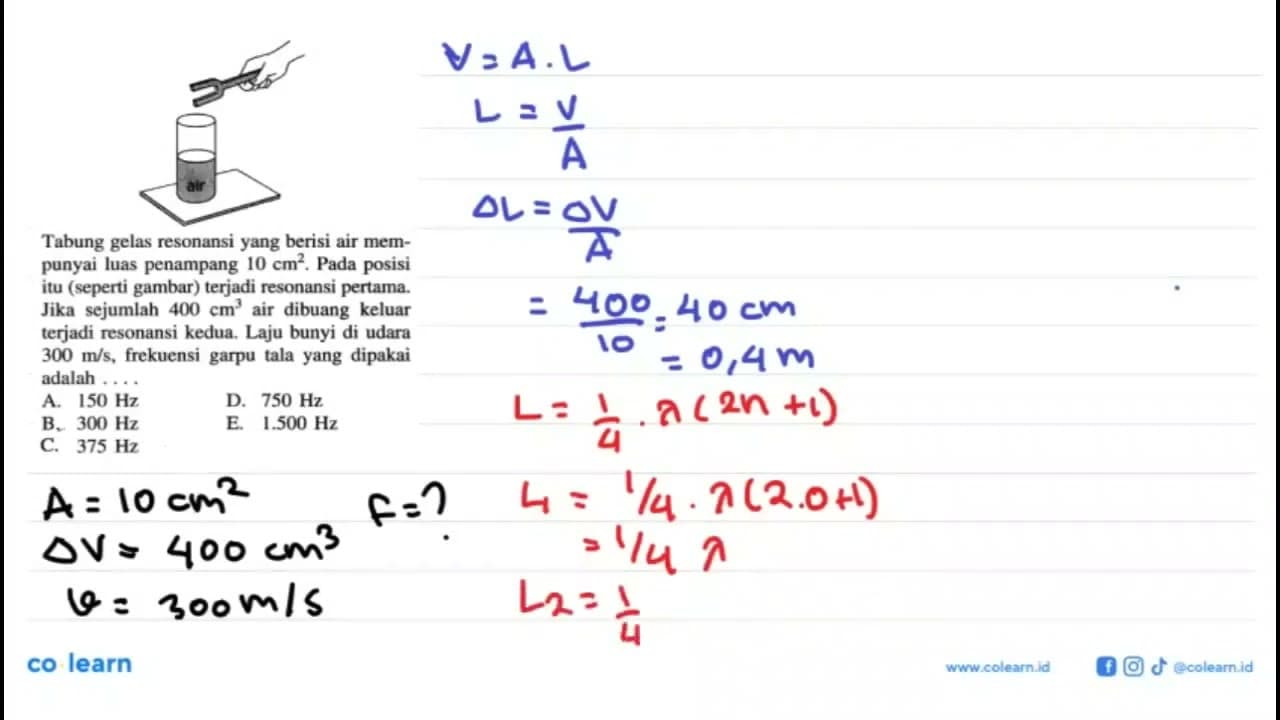 air
Tabung gelas resonansi yang berisi air mem-
punyai luas penampang 10 cm². Pada posisi
itu (seperti gambar) terjadi resonansi pertama.
Jika sejumlah 400 cm³ air dibuang keluar
terjadi resonansi kedua. Laju bunyi di udara
300 m/s, frekuensi garpu tala yang dipakai
adalah . . . .
A. 150 Hz D. 750 Hz
B. 300 Hz E. 1.500 Hz
C. 375 Hz
A = 10 cm²
ΔV = 400 cm³
v = 300 m/s
F = ?
V = A . L
L = V/A
ΔL = ΔV/A
= 400/10 = 40 cm
= 0,4 m
L = 1/4 . λ (2n + 1)
L1 = 1/4 . λ (2.0+1)
= 1/4 λ
L2 = 1/4
co learn
www.colearn.id
@colearn.id